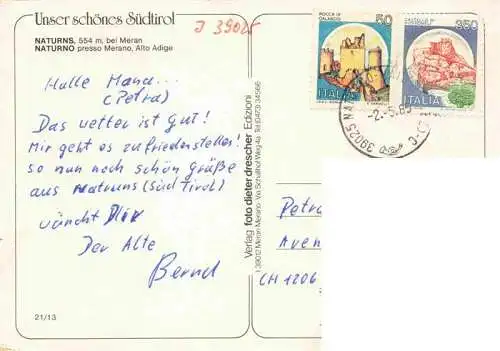 Unser schönes Südtirol
NATURNS, 554 m, bei Meran
NATURNO presso Merano, Alto Adige
J 39025
Halle Mana...
(Petra)
Das wetter ist gut!
Mir geht es zufriedenstellen!
so nun noch schön grüße
aus Naturns (Süd Tirol)
wüncht Dir
Der Alte
Bernd
21/13
Verlag foto dieter drescher Edizioni
I 39012 Meran Merano · Via Schaffhof Weg 4a · Tel (0473) 34566
ROCCA DI
CALASCIO
50
ITALIA
350
ITALIA
39025 NA
-2.-5.85
Petra
Aven
CH 1206